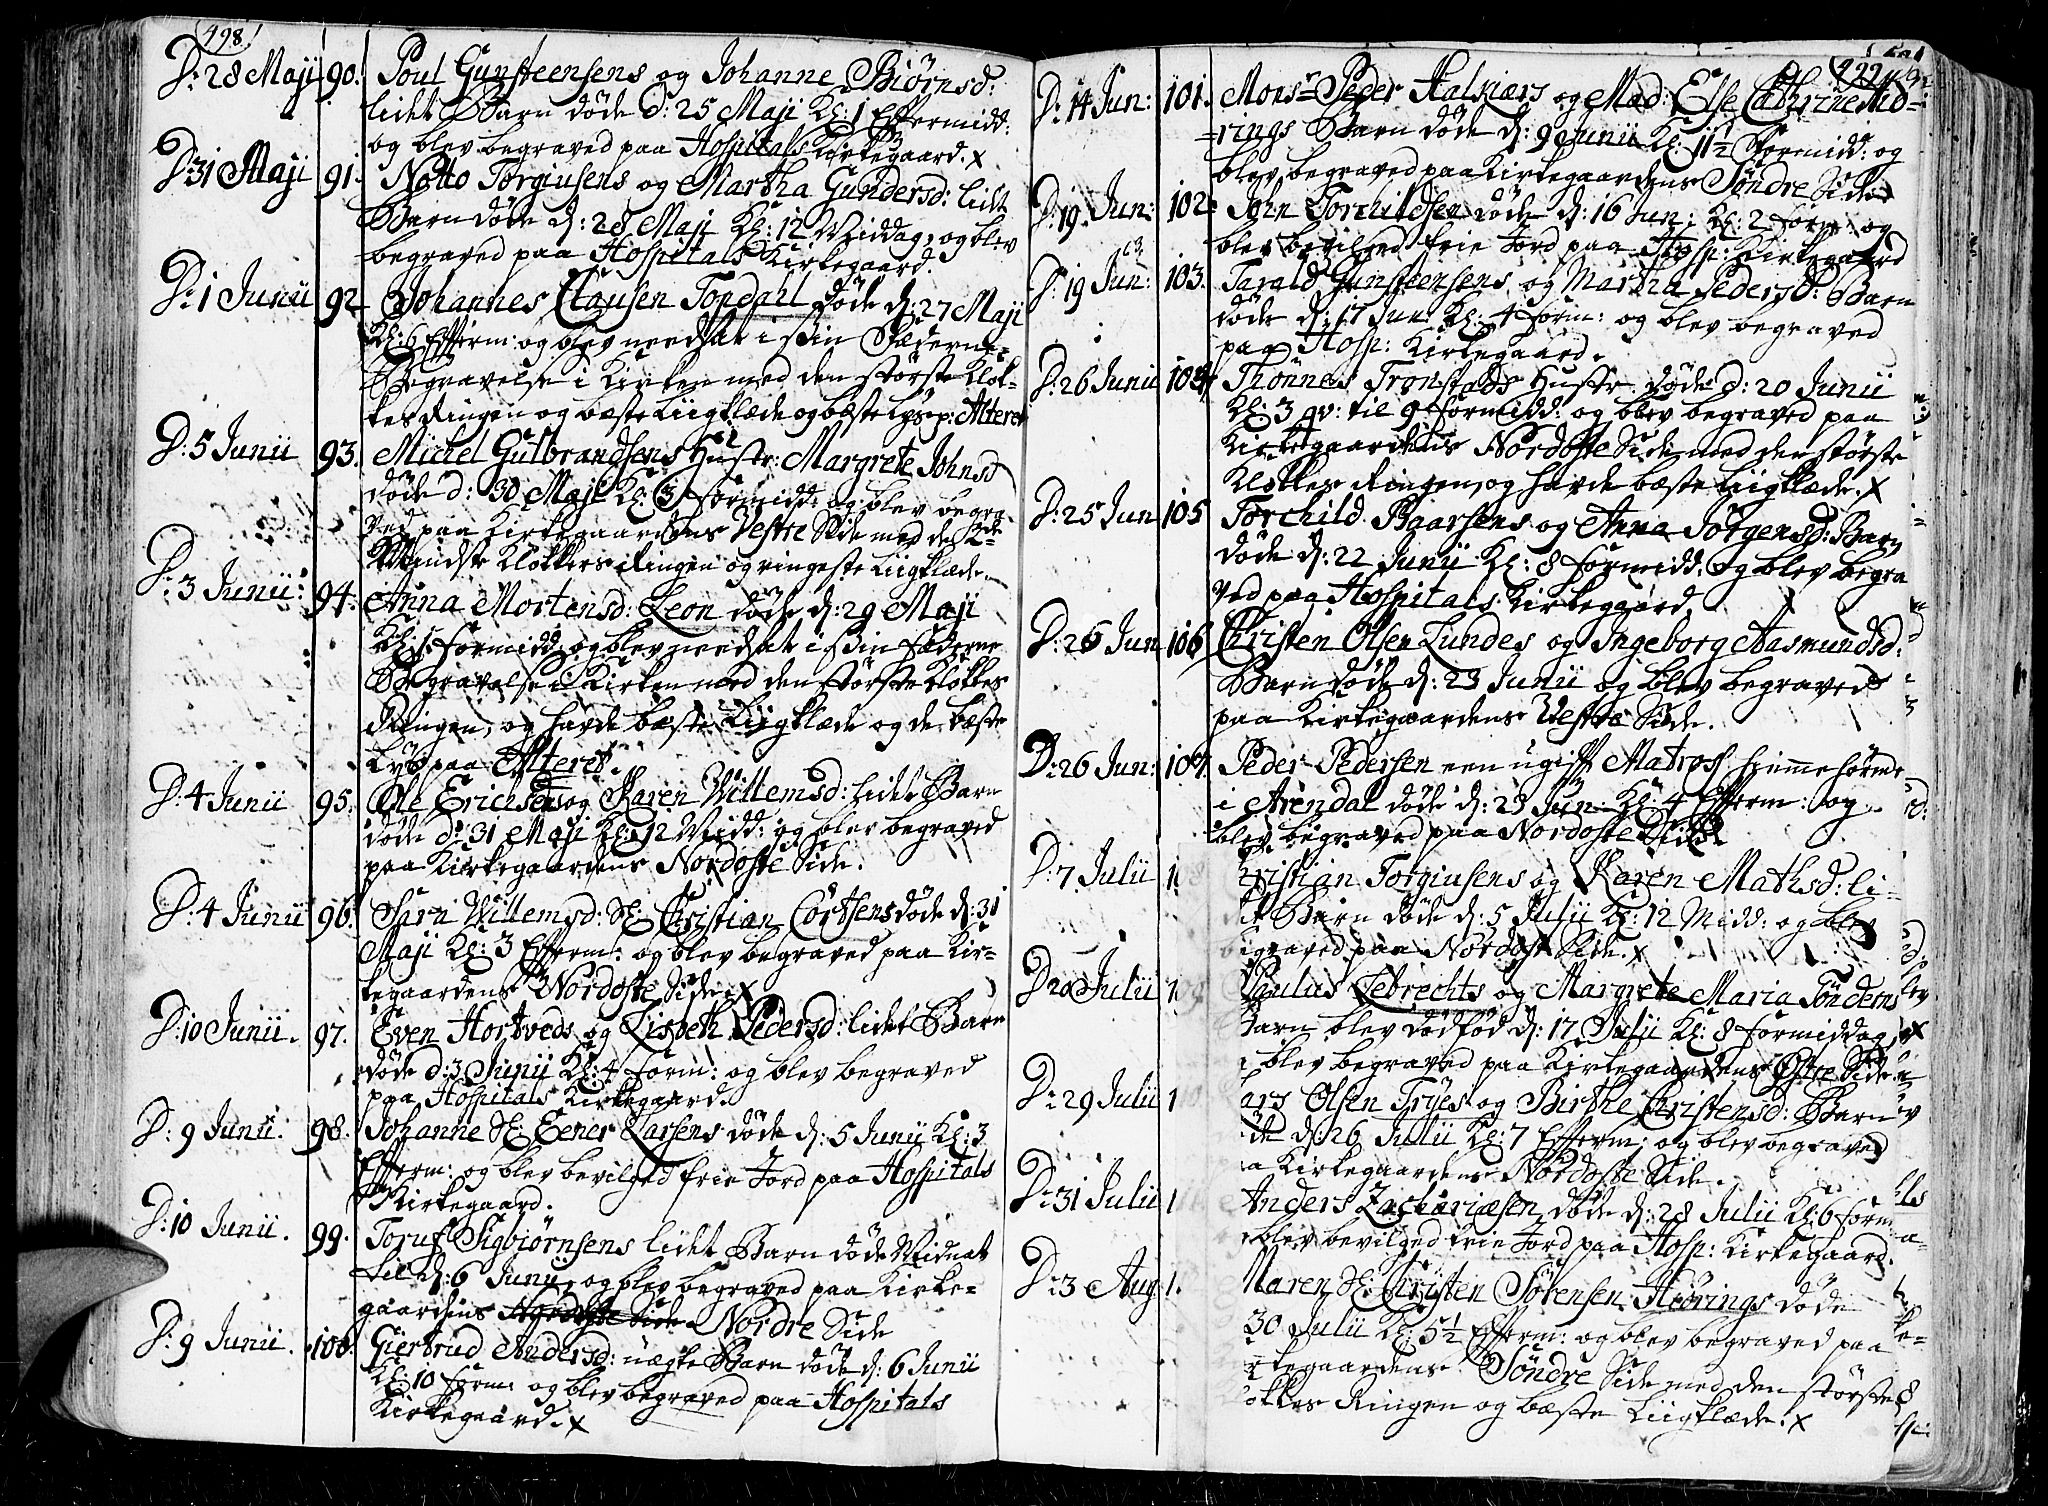 498
D: 28 Maji 90. Poul Gunsteensens og Johanne Biørnsd:
lidet Barn døde d: 25 Maji Kl: 1 Effermidd:
og blev begraved paa Hospitals Kirkegaard. x
D: 31 Maji 91. Notto Torgiusens og Martha Gundersd: lidet
Barn døde d: 28 Maji Kl: 12 Middag, og blev
begraved paa Hospitals Kirkegaard.
D: 1 Junii 92 Johannes Clausen Tondahl døde d: 27 Maji
Kl: 6 Efterm: og blev needsat i ßin Fæderne-
Begravelse i Kirken med den største Klok-
kes Ringen og bæste Liigklæde og bæste Lys p: Alteret
D: 5 Junii 93. Michel Gulbrandsens Hustr: Margrete Johnsd
døde d: 30 Maji Kl: 3 formidd: og blev begra-
ved paa Kirkegaardens Vestre Side med de 2de
Mindste Klokkers Ringen og ringeste Liigklæde.
D: 3 Junii: 94. Anna Mortensd: Leon døde d: 29 Maji
Kl: 1 formidd og blev needsat i ßin fæderne
Begravelse i Kirken med den største Klokkes
Ringen, og havde bæste Liigklæde og de bæste
Lys paa Alteret.
D: 4 Junii 95. Ole Erichsens og Karen Willemsd: lidet Barn
døde d: 31 Maji Kl: 12 Midd: og blev begraved
paa Kirkegaardens Nordoste Side.
D: 4 Junii 96. Sara Willemsd: Sl: Christian Cortsens døde d: 31
Maji Kl: 3 Efterm: og blev begraved paa Kir-
kegaardens Nordoste Side. x
D: 10 Junii. 97. Even Hortveds og Lisbeth Pedersd: lidet Barn
døde d: 3 Junii Kl: 4 form: og blev begraved
paa Hospitals Kirkegaard.
D: 9 Junii. 98. Johanne Sl: Eener Larsens døde d: 5 Junii Kl: 3
Efterm: og blev bevilged frie Jord paa Hospitals
Kirkegaard.
D: 10 Junii. 99. Toruf Sigbiørnsens lidet Barn døde Midnat
til d: 6 Junii, og blev begraved paa Kirke-
gaardens Nordoste Side Nordre Side
D: 9 Junii. 100. Giertrud Andersd: uægte Barn døde d: 6 Junii
Kl: 10 form: og blev begraved paa Hospitals
Kirkegaard. x
499
D: 14 Jun: 101. Monsr Peder Halkiærs og Mad: Else Cathrine
rings Barn døde d: 9 Junii Kl: 11½ Formidd: og
blev begraved paa Kirkegaardens Søndre Side
D: 19 Jun: 102. John Torchildsen døde d: 16 Jun: Kl: 2 form: og
blev bevilged frie Jord paa Hosp: Kirkegaard
D: 19 Jun: 103. Tarald Gunsteensens og Martha Pedersd: Barn
døde d: 17 Jun Kl: 4 form: og blev begraved
paa Hosp: Kirkegaard.
D: 26 Junii 104 Thønnes Tronstads Hustr døde d: 20 Junii
Kl: 3 qv: til 9 formidd: og blev begraved paa
Kirkegaardens Nordoste Side med den største
Klokkes Ringen, og havde bæste Liigklæde. x
D: 25 Jun 105 Torchild Baarsens og Anna Jørgensd: Barn
døde d: 22 Junii Kl: 8 formidd: og blev begra
ved paa Hospitals Kirkegaard.
D: 26 Jun 106 Christen Olsen Lundes og Ingeborg Aasmundsd:
Barn døde d: 23 Junii og blev begraved
paa Kirkegaardens Vestre Side.
D: 26 Jun: 107. Peder Pedersen een ugift Matros hiemmehørende
i Arendal døde d: 23 Jun: Kl: 4 Efterm: og
blev begraved paa Nordoste Side
D: 7 Julii 108 Christian Torgiusens og Karen Mathsd: li-
det Barn døde d: 5 Julii Kl: 12 Midd: og blev
begraved paa Nordost Side. x
D: 20 Julii 109 Paulus Lebrechts og Margrete Maria Tønders
Barn blev dødfød d: 17 Julii Kl: 8 formiddag,
blev begraved paa Kirkegaardens Østre Side.
D: 29 Julii 1 ars Olsen Tryes og Birthe Christensd: Barn
de d: 26 Julii Kl: 7 Efterm: og blev begraved
a Kirkegaardens Nordoste Side.
D: 31 Julii 1 Anders Zachariæsen døde d: 28 Julii Kl: 6 form
blev bevilged frie Jord paa Hosp: Kirkegaard.
D: 3 Aug 1. Maren Sl: Christen Sørensen Hiørings døde
30 Julii Kl: 5½ Efterm: og blev begraved paa
rkegaardens Søndre Side med den største
okkes Ringen og bæste Liigklæde. x